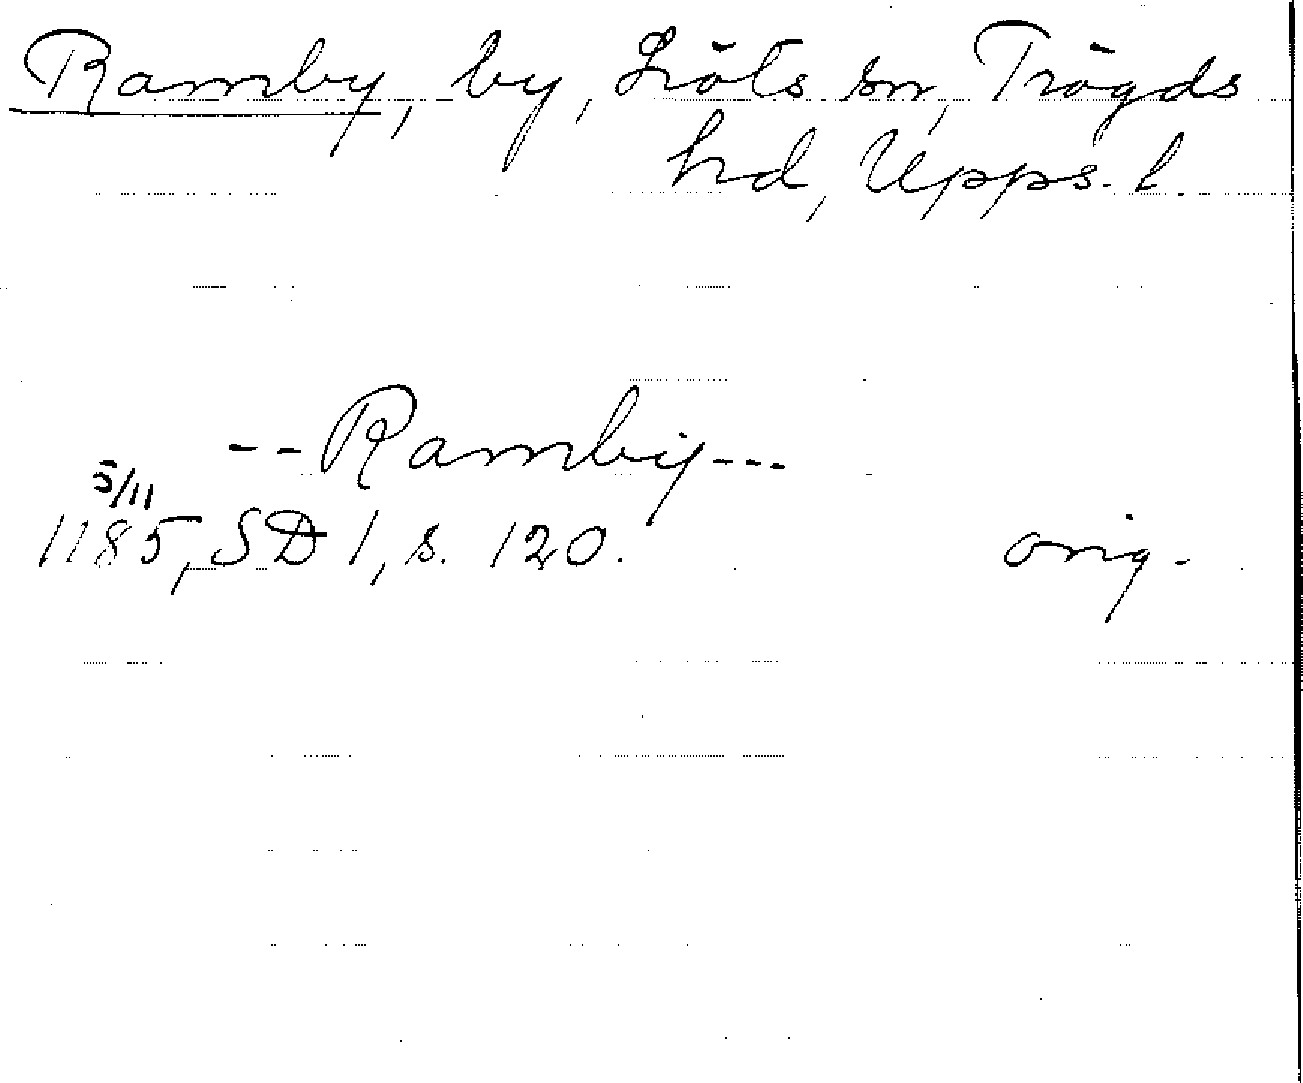 Ramby, by, Löts sn, Trögds
hd, Upps. l.
--Ramby---
5/11
1185, SD 1, s. 120. orig.